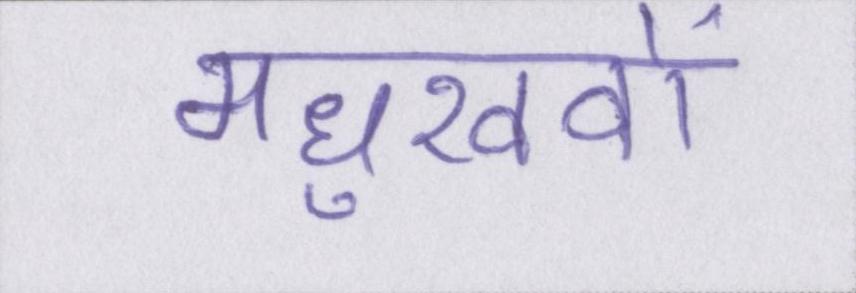 मधुरववों